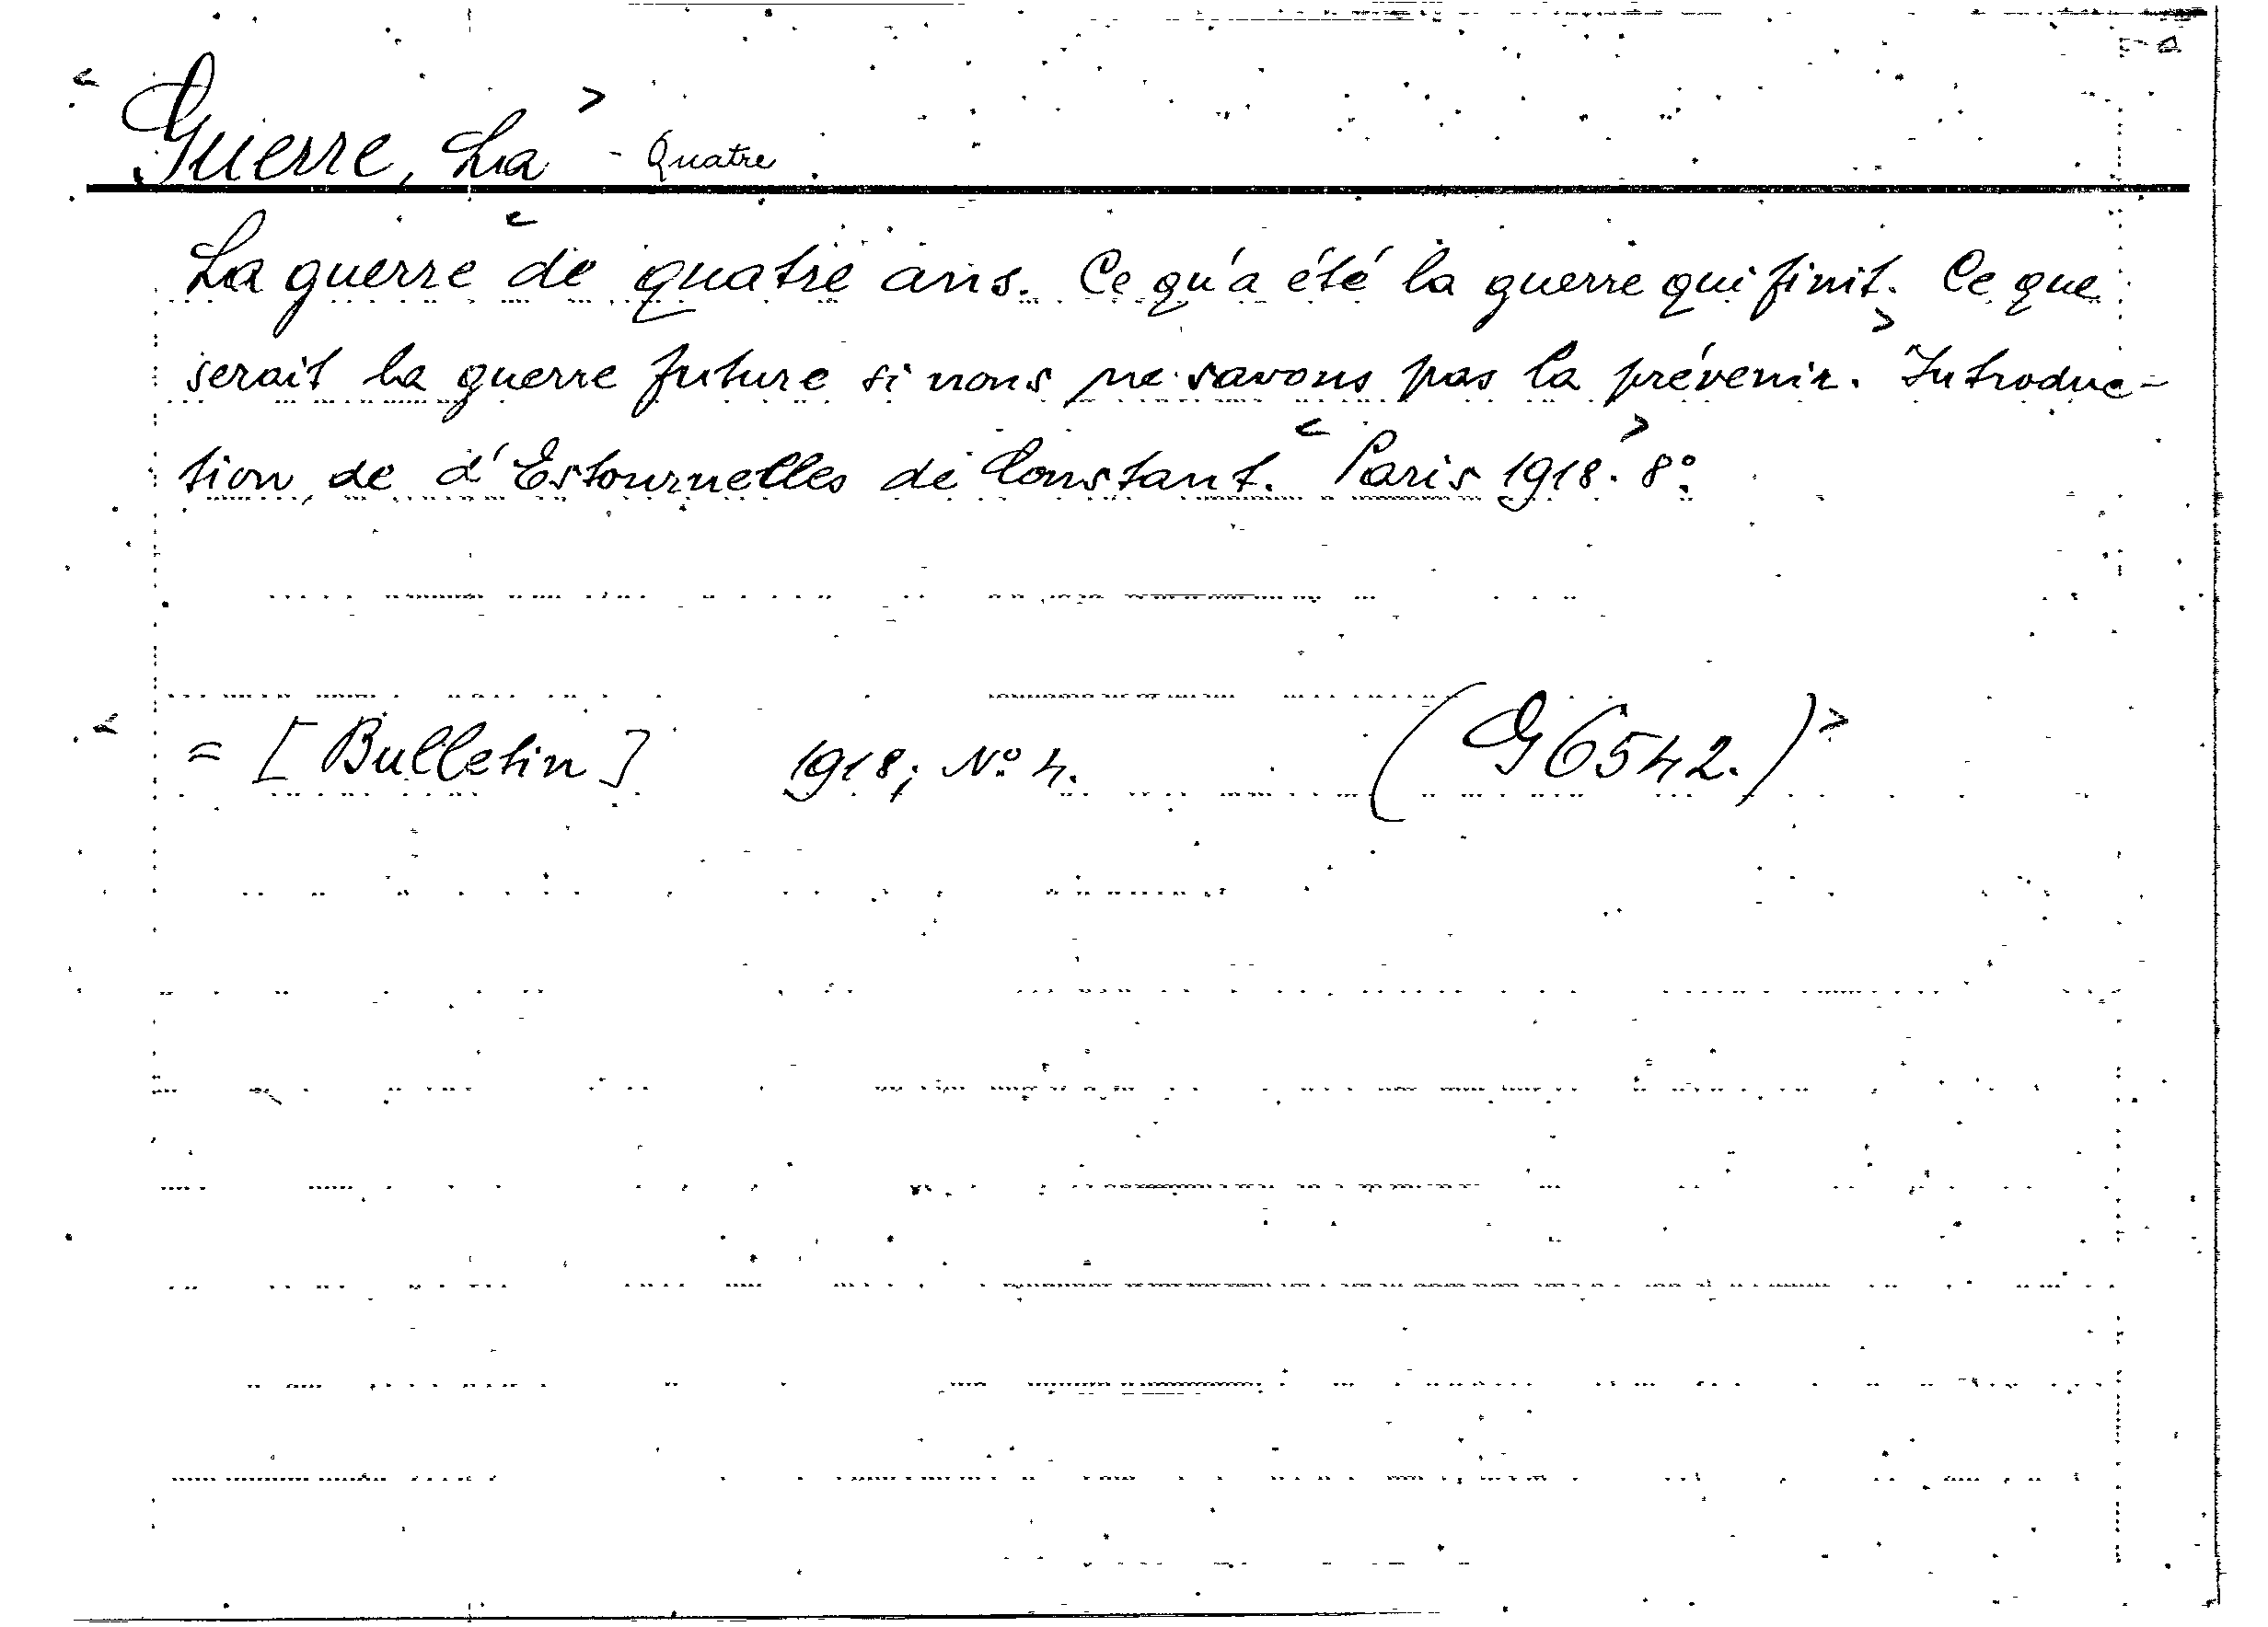 < Guerre, La > - Quatre
La guerre < de quatre ans. Ce qu'a été la guerre qui finit. Ce que
serait la guerre future si nous ne savons pas la prévenir. > Introduc-
tion de d'Estournelles de Constant. < Paris 1918. > 8°.
< = [Bulletin] 1918; N° 4. (G 6542.) >